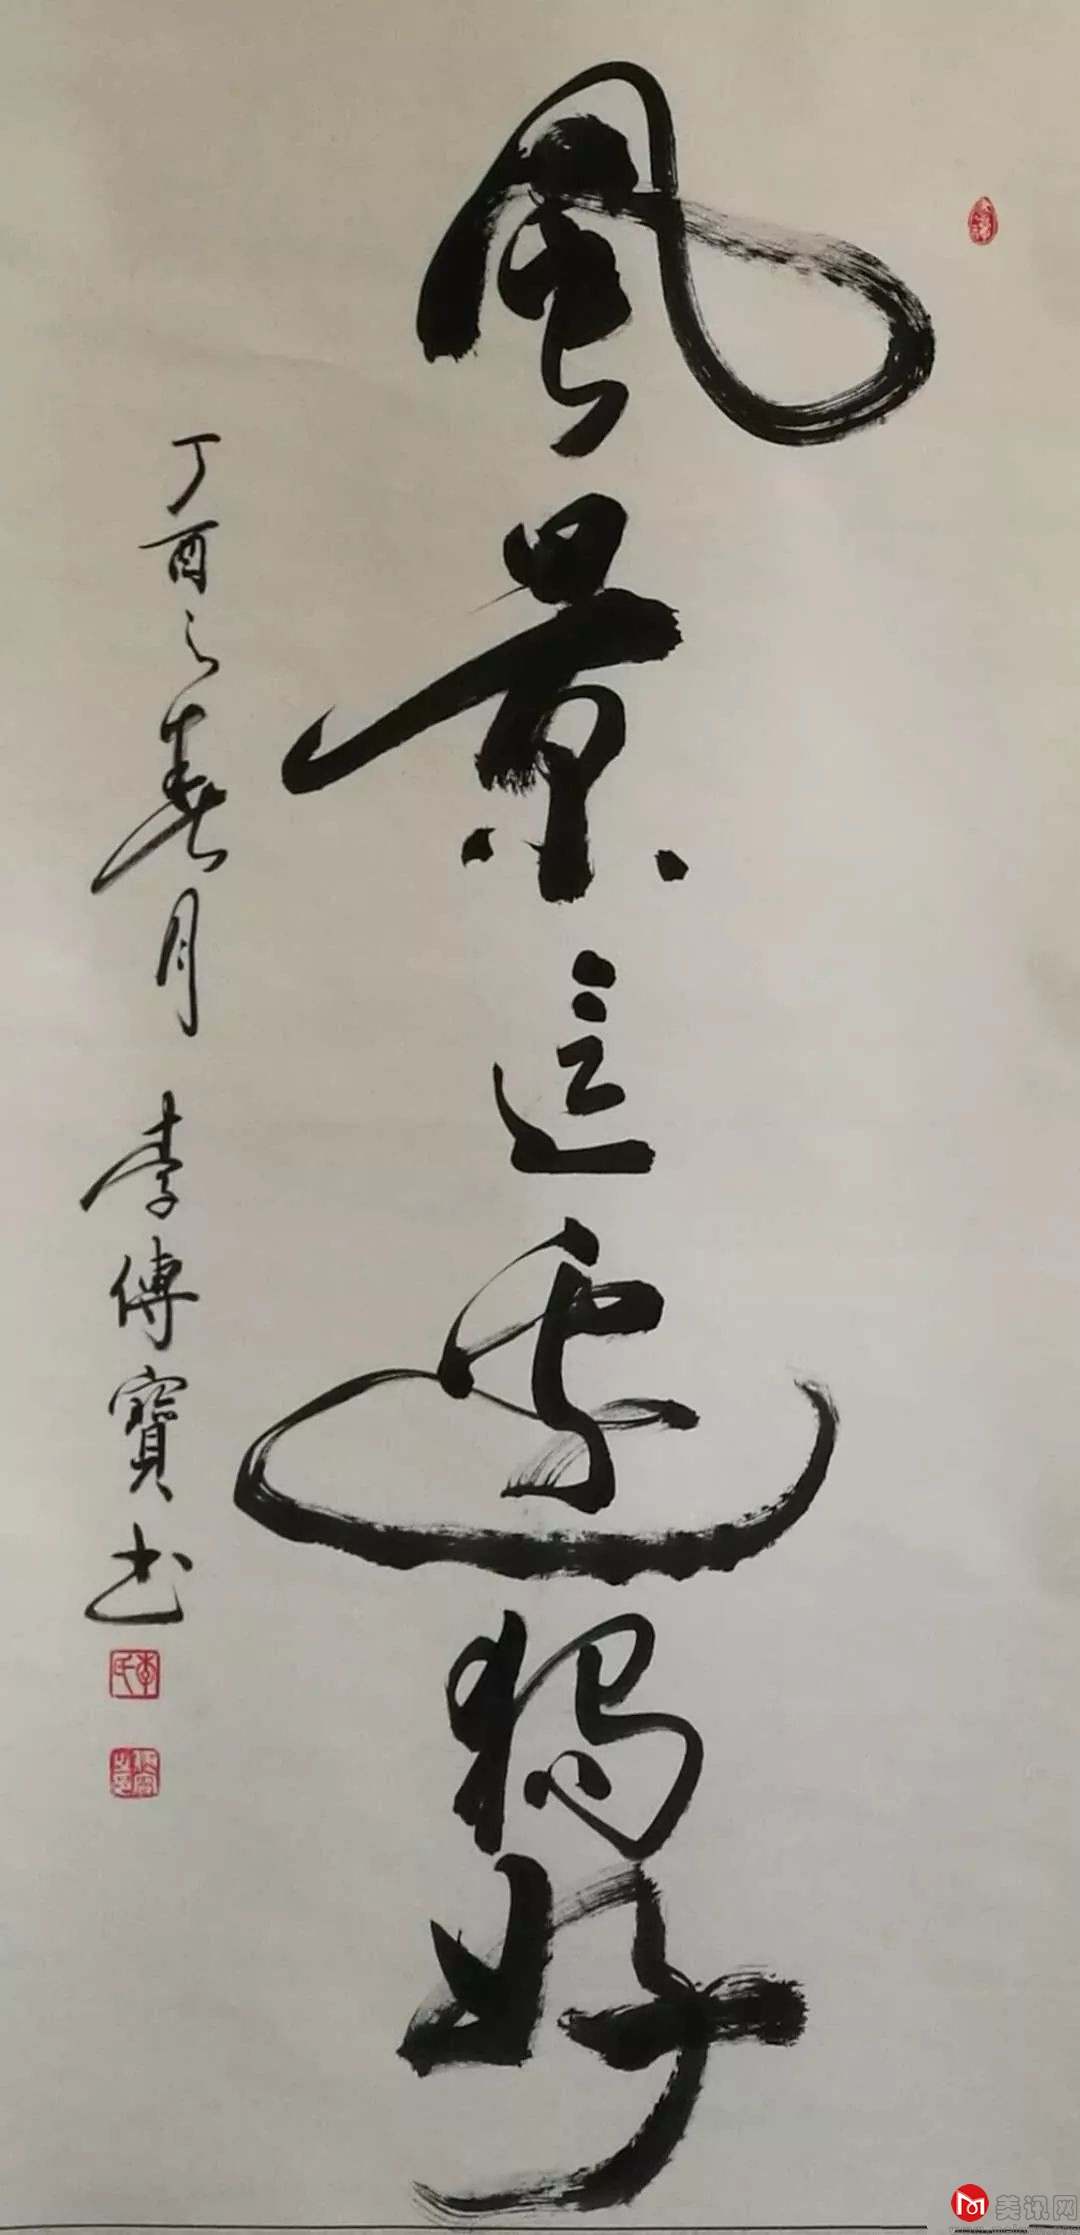 風景這邊獨好
丁酉之春月 李傳寶书
李氏
美讯网